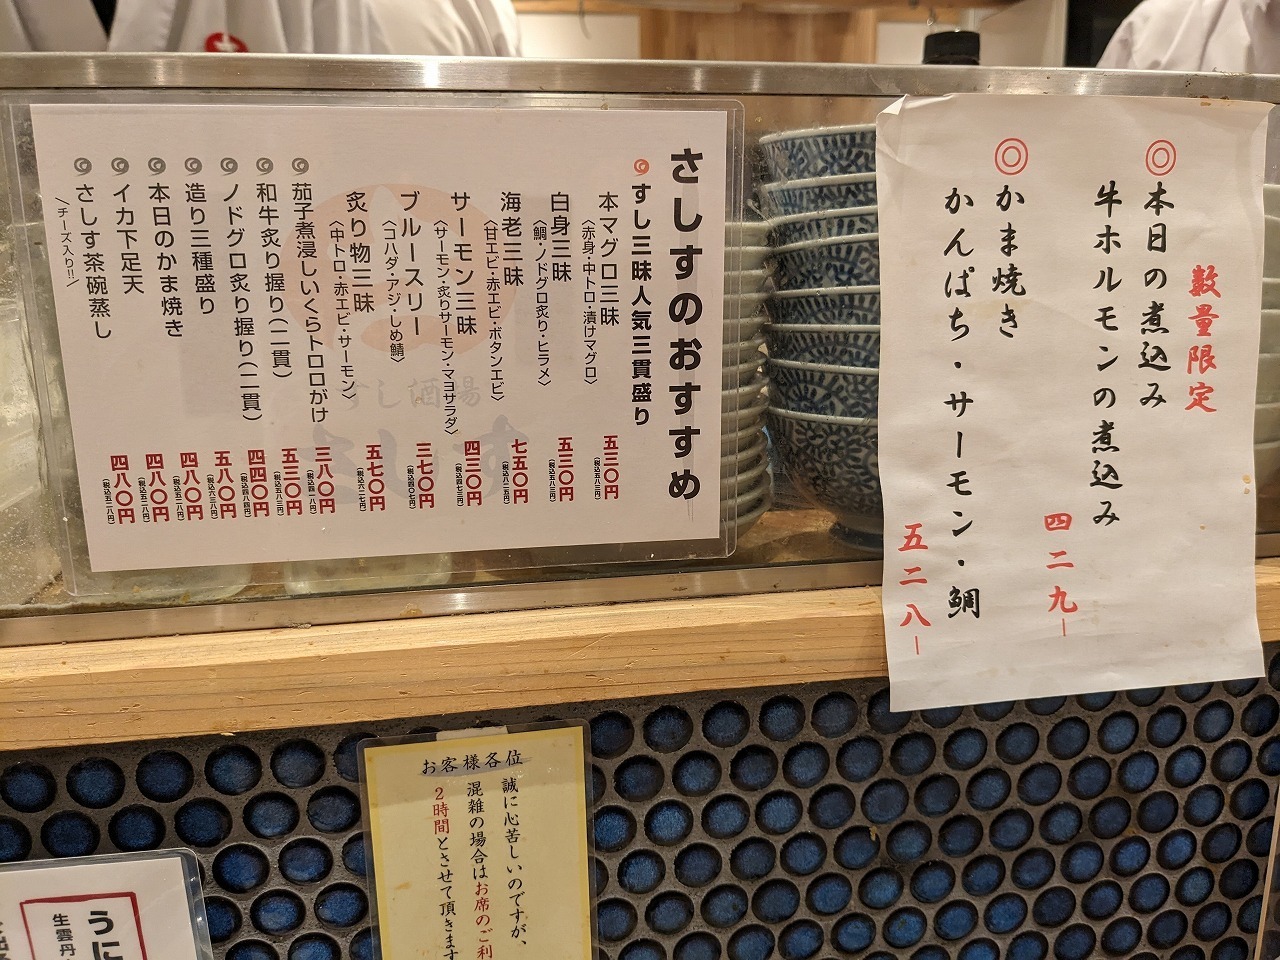 さしすのおすすめ
すし三昧人気三貫盛り
本マグロ三昧
〈赤身・中トロ・漬けマグロ〉
五三〇円
(税込五八三円)
白身三昧
〈鯛・ノドグロ炙り・ヒラメ〉
五三〇円
(税込五八三円)
海老三昧
〈甘エビ・赤エビ・ボタンエビ〉
七五〇円
(税込八二五円)
サーモン三昧
〈サーモン・炙りサーモン・マヨサラダ〉
四三〇円
(税込四七三円)
ブルースリー
〈コハダ・アジ・しめ鯖〉
三七〇円
(税込四〇七円)
炙り物三昧
〈中トロ・赤エビ・サーモン〉
五七〇円
(税込六二七円)
茄子煮浸しいくらトロロがけ
三八〇円
(税込四一八円)
和牛炙り握り(二貫)
五三〇円
(税込五八三円)
ノドグロ炙り握り(二貫)
四四〇円
(税込四八四円)
造り三種盛り
五八〇円
(税込六三八円)
本日のかま焼き
四八〇円
(税込五二八円)
イカ下足天
四八〇円
(税込五二八円)
さしす茶碗蒸し
\チーズ入り!!/
四八〇円
(税込五二八円)
数量限定
◎本日の煮込み
牛ホルモンの煮込み
四二九-
◎かま焼き
かんぱち・サーモン・鯛
五二八-
お客様各位
誠に心苦しいのですが、
混雑の場合はお席のご利
2時間とさせて頂きます
うに
生雲丹
すし酒場
さしす